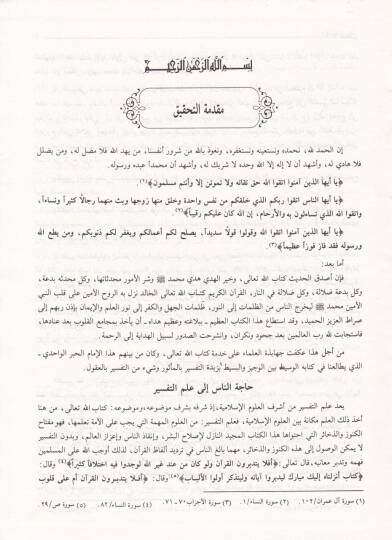 بسم الله الرحمن الرحيم
مقدمة التحقيق
إن الحمد لله، نحمده ونستعينه ونستغفره، ونعوذ بالله من شرور أنفسنا، من يهد الله فلا مضل له، ومن يضلل
فلا هادي له، وأشهد أن لا إله إلا الله وحده لا شريك له، وأشهد أن محمداً عبده ورسوله.
﴿يا أيها الذين آمنوا اتقوا الله حق تقاته ولا تموتن إلا وأنتم مسلمون﴾(١).
﴿يا أيها الناس اتقوا ربكم الذي خلقكم من نفس واحدة وخلق منها زوجها وبث منهما رجالاً كثيراً ونساءاً،
واتقوا الله الذي تساءلون به والأرحام، إن الله كان عليكم رقيباً﴾(٢).
﴿يا أيها الذين آمنوا اتقوا الله وقولوا قولاً سديداً، يصلح لكم أعمالكم ويغفر لكم ذنوبكم، ومن يطع الله
ورسوله فقد فاز فوزاً عظيماً﴾(٣).
أما بعد:
فإن أصدق الحديث كتاب الله تعالى، وخير الهدي هدي محمد ﷺ وشر الأمور محدثاتها، وكل محدثة بدعة،
وكل بدعة ضلالة، وكل ضلالة في النار، القرآن الكريم كتاب الله تعالى الخالد نزل به الروح الأمين على قلب النبي
الأمين محمد ﷺ ليخرج الناس من الظلمات إلى النور، ظلمات الجهل والكفر إلى نور العلم والإيمان بإذن ربهم إلى
صراط العزيز الحميد، وقد استطاع هذا الكتاب العظيم ـ ببلاغته وعظيم هداه ـ أن يأخذ بمجامع القلوب بعد عنادها،
فاستجابت لله رب العالمين بعد جحود ونكران، وانشرحت الصدور لسبيل الهداية إلى الرحمة.
من أجل هذا عكفت جهابذة العلماء على خدمة كتاب الله تعالى، وكان من بينهم هذا الإمام الحبر الواحدي ـ
الذي يطالعنا في كتابه الوسيط بين الوجيز والبسيط بزبدة التفسير بالمأثور وشيء من التفسير بالمعقول.
حاجة الناس إلى علم التفسير
يعد علم التفسير من أشرف العلوم الإسلامية، إذ شرفه بشرف موضوعه، وموضوعه: كتاب الله تعالى، من هنا
أخذ ذلك العلم مكانة بين العلوم الإسلامية، فعلم التفسير: من العلوم المهمة التي يجب على الأمة تعلمها، فهو مفتاح
الكنوز والذخائر التي احتواها هذا الكتاب المجيد النازل لإصلاح البشر، وإنقاذ الناس وإعزاز العالم، وبدون التفسير
لا يمكن الوصول إلى هذه الكنوز والذخائر، مهما بالغ الناس في ترديد ألفاظ القرآن، لذلك أوجب الله على المسلمين
فهمه وتدبر معانيه، قال تعالى: ﴿أفلا يتدبرون القرآن ولو كان من عند غير الله لوجدوا فيه اختلافاً كثيراً﴾(٤) وقال:
﴿كتاب أنزلناه إليك مبارك ليدبروا آياته وليتذكر أولوا الألباب﴾(٥) وقال: ﴿أفلا يتدبرون القرآن أم على قلوب
(١) سورة آل عمران/١٠٢. (٢) سورة النساء/١. (٣) سورة الأحزاب ٧٠ ـ ٧١. (٤) سورة النساء/٨٢. (٥) سورة ص/٢٩.